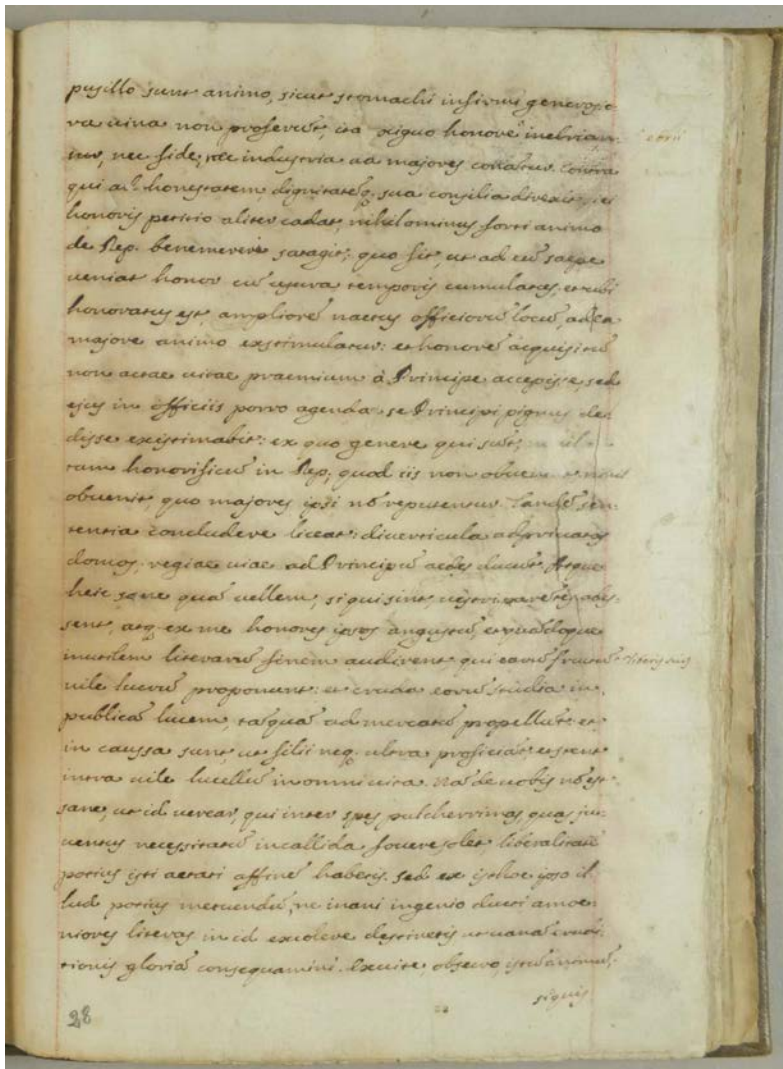 pusillo sunt animo, sicut stomachi infirmi generosio-
ra uina non proferunt, ita exiguo honore inebrian-
tur, nec fide, nec industria ad majores conatus. Contra
qui ad honestatem, dignitateq. sua consilia direxit, si ei
honoris petitio aliter cadat, nihilominus forti animo
de Rep. benemereri satagit; quo fit, ut ad eũ saepe
ueniat honor cũ usura temporis cumulatus, et ubi
honoratus est, ampliorẽ nactus officiorũ locũ, ad ea
majore animo exstimulatur: et honorẽ acquisitũ
non actae uitae praemium à Principe accepisse, sed
ejus in officiis porro agenda se Principi pignus de-
disse existimabit: ex quo genere qui sunt,
tam honorificũ in Rep; quod iis non
obuenit, quo majores ipsi nõ reputentur. Tandẽ sen-
tentia concludere liceat: diuerticula ad priuatas
domos, regiae uiae ad Principũ aedes ducũt. Atque
heic sane quã uellem, si qui sint uestri parẽtes ades-
sent, atq. ex me honores ipsos angustũ,
inutilem literariũ finem audirent qui earũ fructũ
uile lucrũ proponunt: et cruda eorũ studia in
publicã lucem, tãquã ad mercatũ propellũt: et
in caussa sunt, ut filii neq. ultra proficiãt et stent
intra uile lucellũ in omni uita. Nã de uobis nõ est
sane, ut id uerear, qui inter spes pulcherrimas quas ju-
uentus necessitatũ incallida fouere solet, liberalitatẽ
potius isti aetati affinẽ habetis. Sed ex isthoc ipso il-
lud potius metuendũ, ne inani ingenio ducti amoe-
niores literas in id excolere destinetis ut uanã erudi-
tionis gloriã consequamini. Exuite, obsecro, istũ animũ,
siquis
28